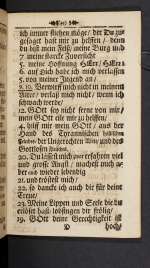 ich immer fliehen möge/ der Du zu-
gesaget hast mir zu helffen/ denn
du bist mein Felß/ meine Burg und
7. meine starcke Zuversicht
8. meine Hoffnung HErr/ HErr
6. auf Dich habe ich mich verlassen
5. von meiner Jugend an/
9. 10. Verwirff mich nicht in meinem
Alter/ verlaß mich nicht/ wenn ich
schwach werde/
GOtt sey nicht ferne von mir/
mein GOtt eile mir zu helffen/
4. hilff mir mein GOtt/ aus der
Hand des Tyrannischen
der Ungerechten und des
Gottlosen
20. Du lässest mich zwar erfahren viel
und grosse Angst/ machest mich a-
ber wieder lebendig
21. und tröstest mich/
22. so dancke ich auch dir für deine
Treue/
23. Meine Lippen und Seele die du
erlöset hast/ lobsingen dir frölig/
19. GOtt deine Gerechtigkeit ist
D hoch/